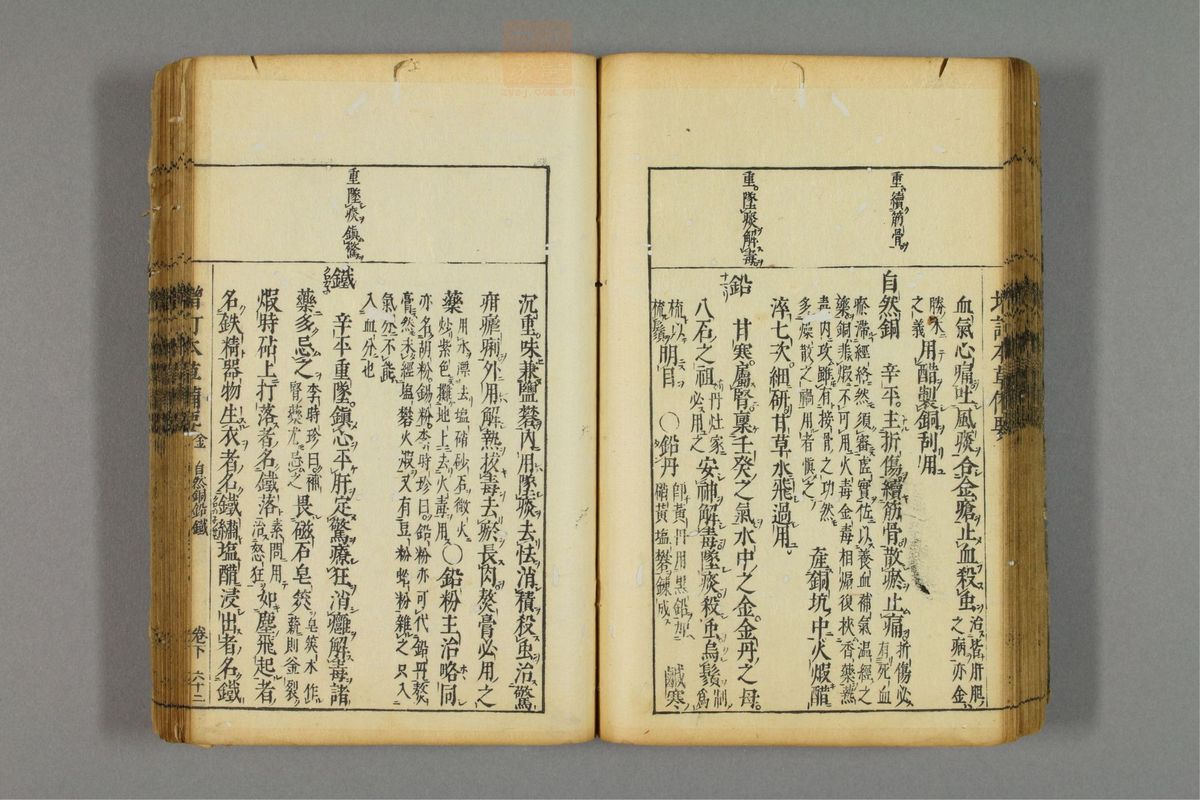 重續筋骨
重墜痰解毒
血氣心痛吐風痰合金瘡止血殺虫治皆肝胆之病亦金
勝木之義用醋製銅刮用
自然銅 辛平主折傷續筋骨散瘀止痛折傷必有死血
瘀滯經絡然須審虛實佐以養血補氣温經之
藥銅非煅不可用火毒金毒相煽復挾香藥熱
毒內攻雖有接骨之功然
多燥散之禍用者愼之 產銅坑中火煅醋
淬七次細研甘草水飛過用
鉛 甘寒屬腎稟壬癸之氣水中之金金丹之母
八石之祖丹灶家必用之安神解毒墜痰殺虫烏鬚制為
梳以梳鬚明目 〇鉛丹即黃丹用黒鉛
硝黃塩礬鍊成 鹹寒
沉重味兼鹽礬內用墜痰去怯消積殺虫治驚
疳瘧痢外用解熱拔毒去瘀長肉熬膏必用之
藥用水漂去塩硝砂石微火炒紫色攤地上去火毒用〇鉛粉主治略同
亦名胡粉錫粉李時珍曰鉛粉亦可代鉛丹熬
膏然未經塩礬火煅又有豆粉蛤粉雜之只入
氣分不能
入血分也
重墜痰鎮驚
鐵 辛平重墜鎮心平肝定驚療狂消癰解毒諸
藥多忌之李時珍曰補腎藥尤忌之畏磁石皂筴皂筴木作薪則釜裂
煅時砧上打落者名鐵落素問用治怒狂如塵飛起者
名鉄精器物生衣者名鐵繡塩醋浸出者名鐵
增訂本草備要 金 自然銅鉛鐵 卷下 六十二